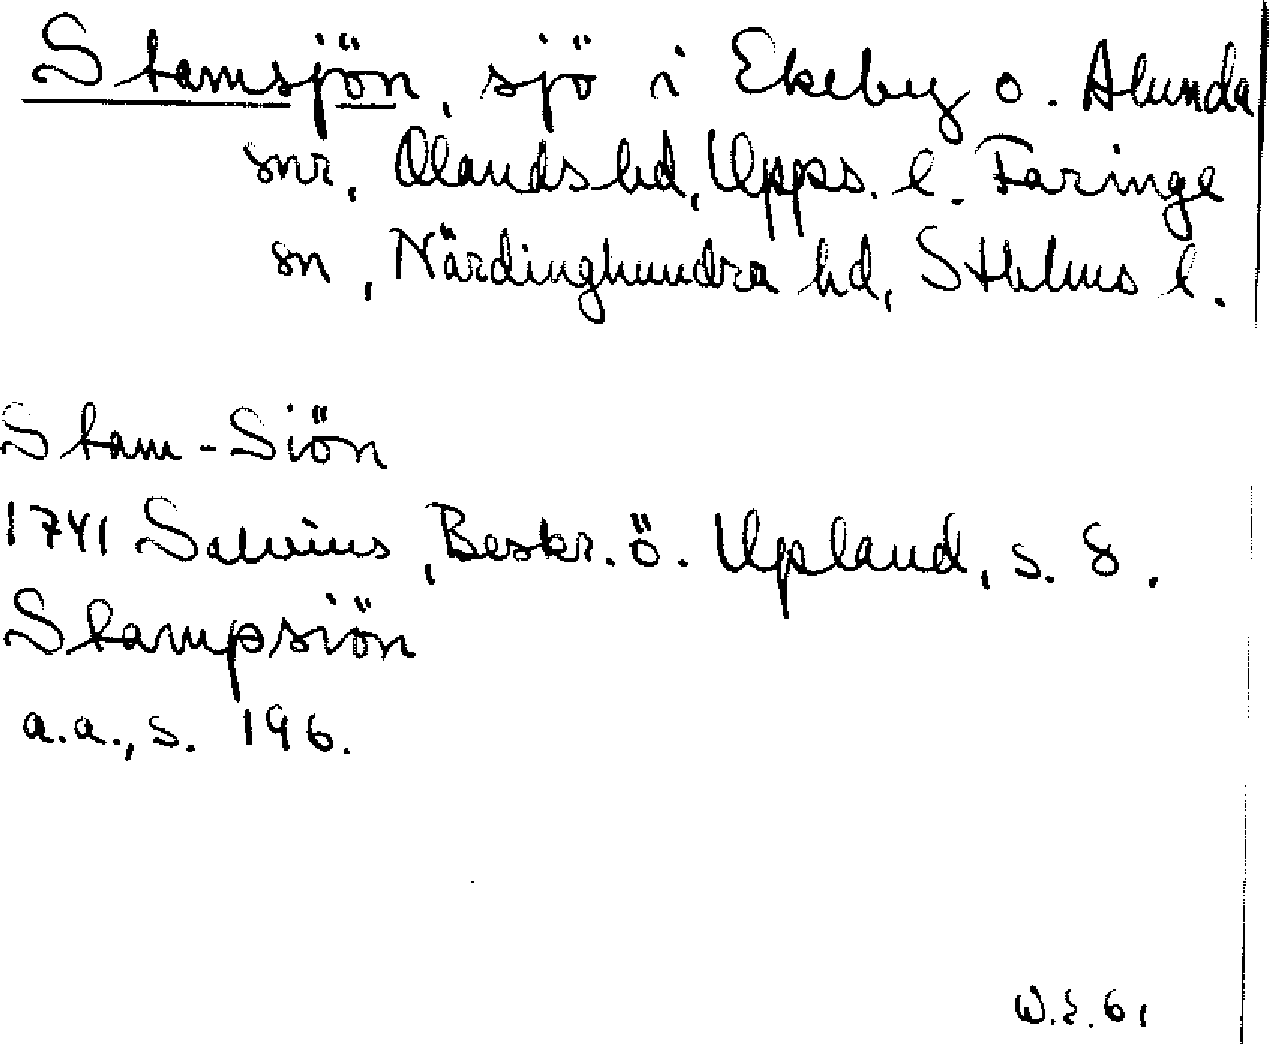 Stamsjön, sjö i Ekeby o. Alunda
snr, Olands hd, Upps. l. Faringe
sn, Närdinghundra hd, Sthlms l.
Stam-Siön
1741 Salvius, Beskr. ö. Upland, s. 8.
Stampsiön
a.a., s. 196.
W.E. 61